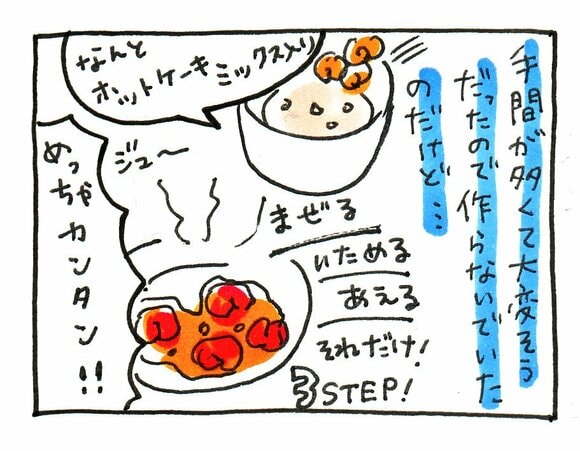 手間が多くて大変そう
だったので作らないでいた
のだけど…
なんと
ホットケーキミックス入り
ジュ〜
まぜる
いためる
あえる
それだけ!
3STEP!
めっちゃカンタン!!